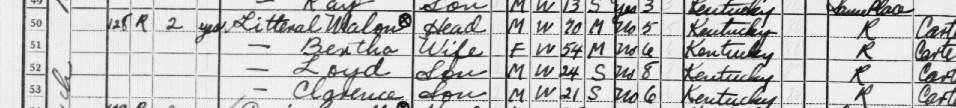 49 Ray Son M W 13 S yes 3 Kentucky Same Place
50 128 R 2 yes Litteral Malon ⓧ Head M W 70 M no 5 Kentucky R Carte
51 — Bertha Wife F W 54 M no 6 Kentucky R Carte
52 — Loyd Son M W 24 S no 8 Kentucky R Cart
53 — Clarence Son M W 21 S no 6 Kentucky R Cart